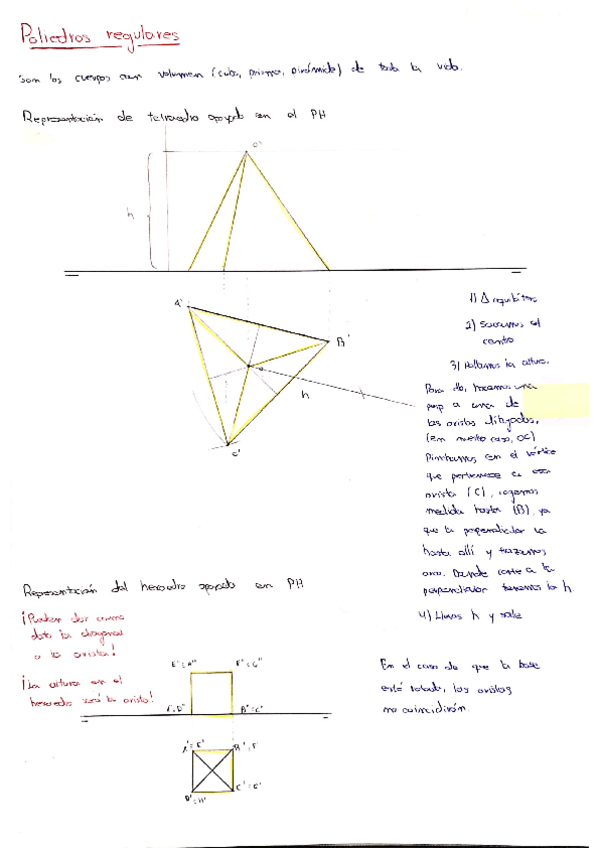 Poliedros regulares
Son los cuerpos con volumen (cubo, prisma, pirámide) de toda la vida.
Representación de tetraedro apoyado en el PH
O"
h
A'
B'
h
C'
1) Δ equilátero
2) Sacamos el
centro
3) Hallamos la altura.
Para ello, trazamos una
perp a una de
las aristas dibujadas.
(En nuestro caso, OC)
Pinchamos en el vértice
que pertenece a esa
arista (C), cogemos
medida hasta (B), ya
que la perpendicular va
hasta allí y trazamos
arco. Donde corte a la
perpendicular tenemos la h.
4) Llevas h y sale
Representación del hexaedro apoyado en PH
¡Pueden dar como
dato la diagonal
o la arista!
¡La altura en el
hexaedro será la arista!
E" = H"
F" = G"
A" = D"
B" = C"
A' = E'
B' = F'
C' = G'
D' = H'
En el caso de que la base
esté rotada, las aristas
no coincidirán.